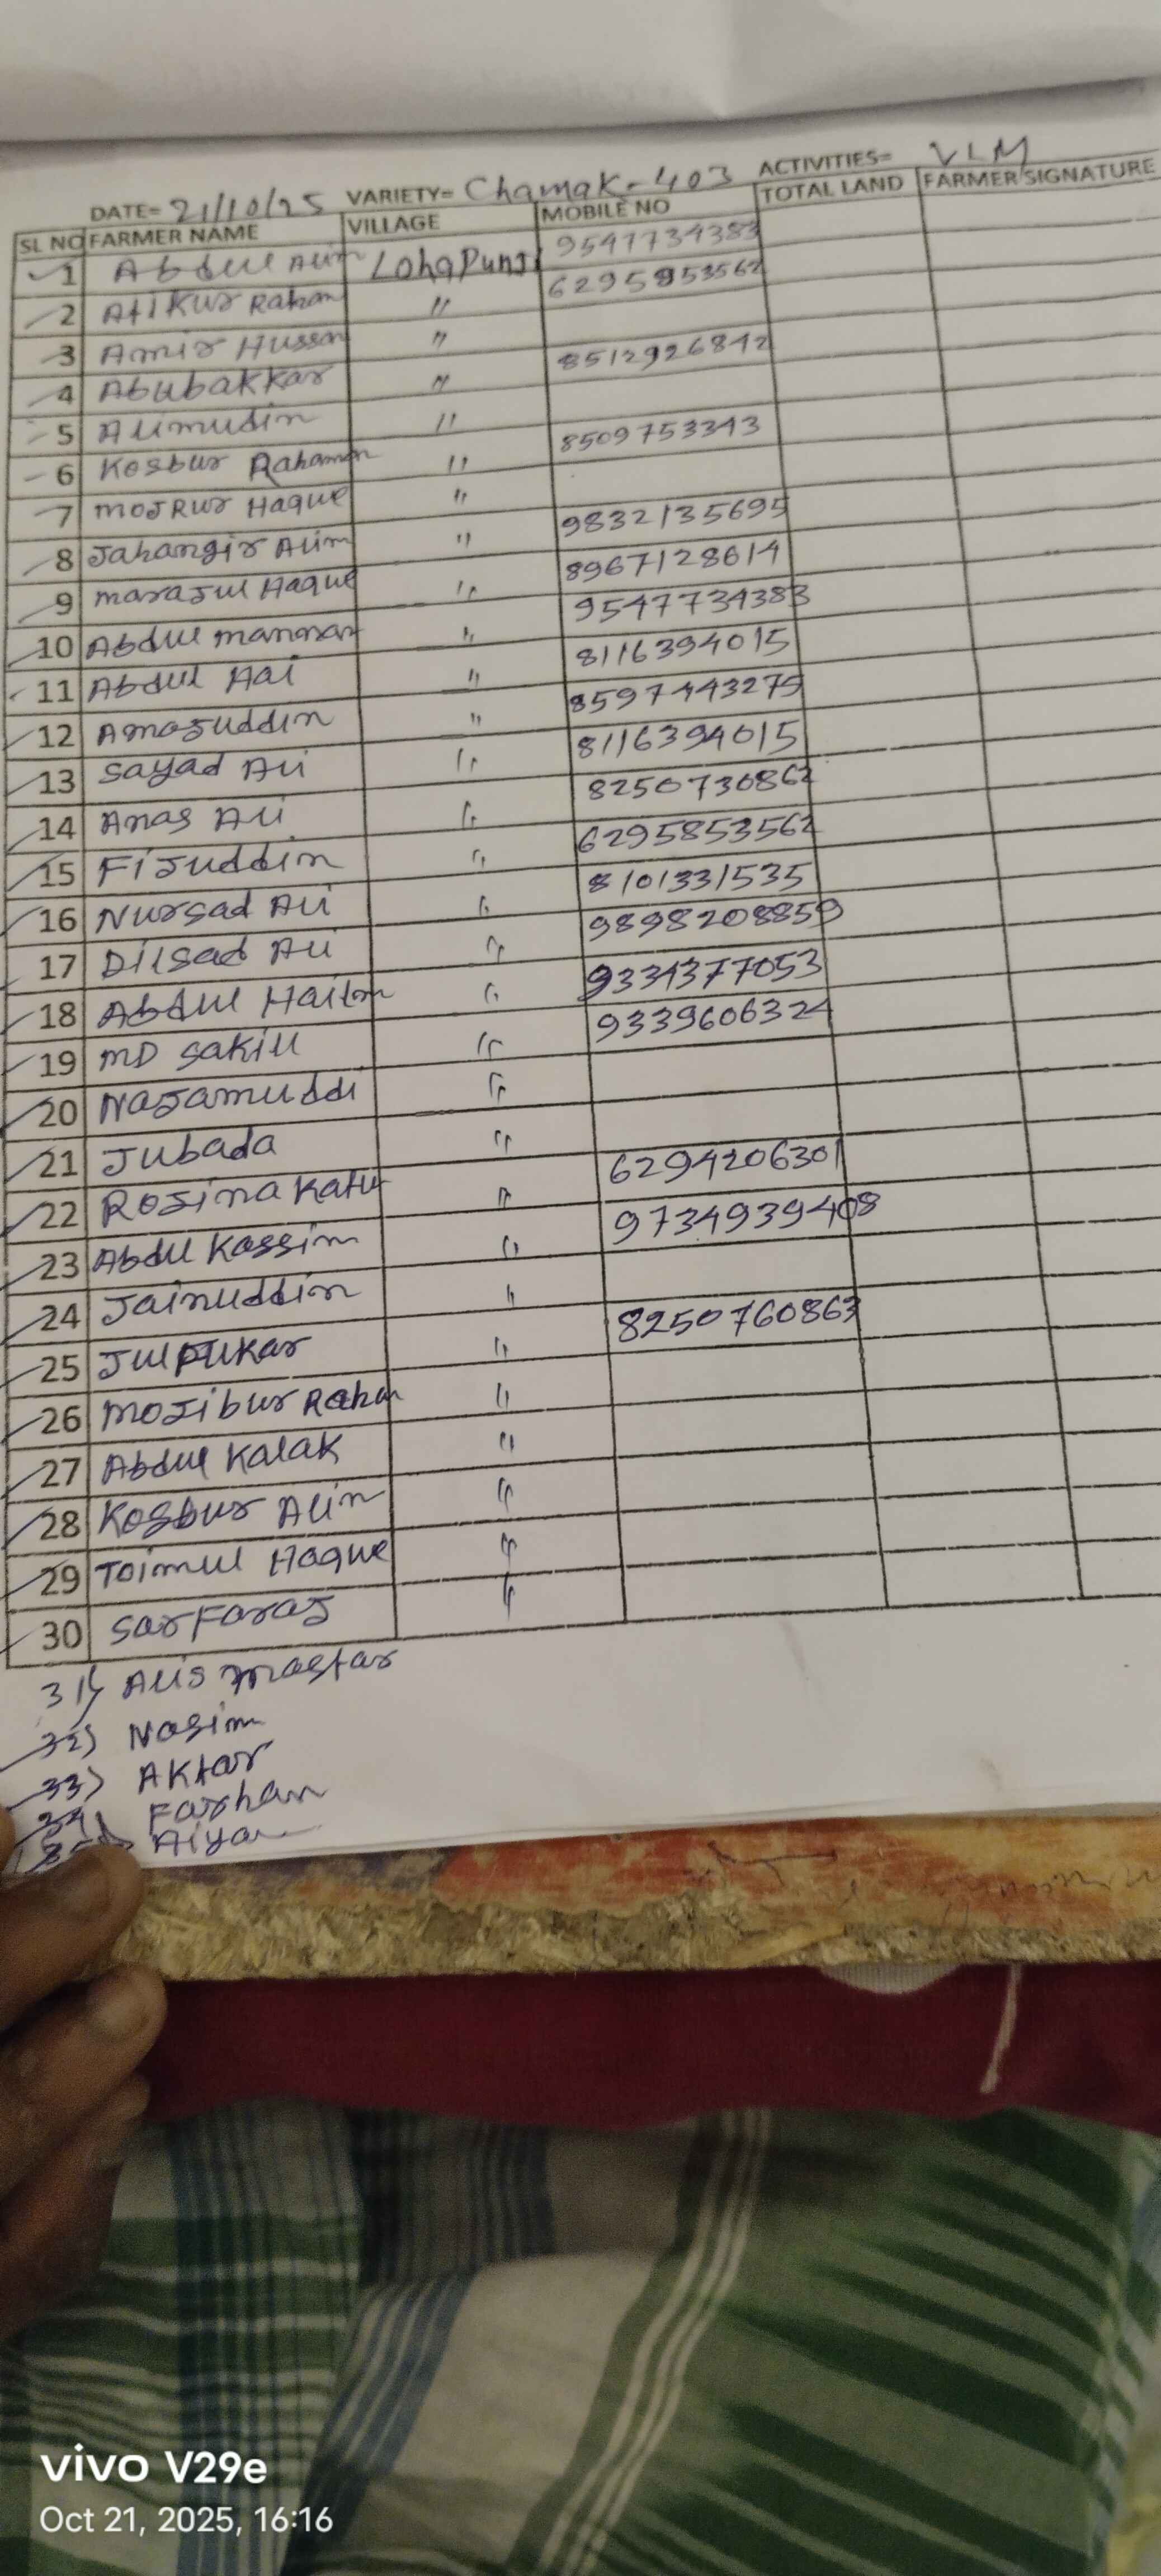 DATE= 21/10/25 VARIETY= Chamak-403 ACTIVITIES= VLM
SL NO FARMER NAME VILLAGE MOBILE NO TOTAL LAND FARMER SIGNATURE
1 Abdul Alim Lohapunji 9547734383
2 Atikur Raham " 6295853562
3 Amir Hussan "
4 Abubakkar " 8512926842
5 Alimudin "
6 Kosbur Rahaman " 8509753343
7 MOJRUR Haque "
8 Jahangir Alim " 9832135695
9 marajul Haque " 8967128614
10 Abdul mannan " 9547734383
11 Abdul Hai " 8116394015
12 Amajuddin " 8597443275
13 Sayad Ali " 8116394015
14 Anas Ali " 8250730862
15 Fijuddin " 6295853562
16 Nursad Ali " 8101331535
17 Dilsad Ali " 9898208859
18 Abdul " 9334377053
19 MD Sakill " 9339606324
20 Najamuddi "
21 Jubada "
22 Rojina Katu " 6294206301
23 Abdul Kassim " 9734939408
24 Jainuddin "
25 Julfukar " 8250760863
26 Mojibur Raha "
27 Abdul Kalak "
28 Kosbur Alim "
29 Toimul Haque "
30 Sarfaraj "
31) Alis mastar
32) Nasim
33) Aktar
34) Farhan
35)
vivo V29e
Oct 21, 2025, 16:16